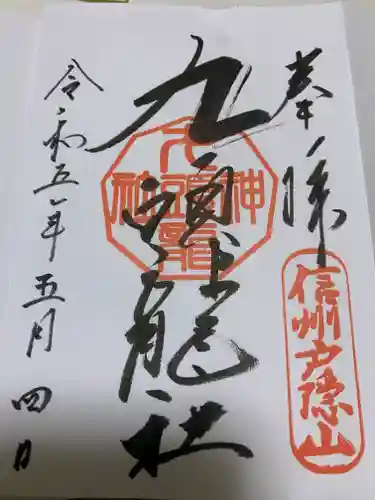 奉拝
信州戸隠山
九頭龍社
九頭龍神社
令和五年五月四日